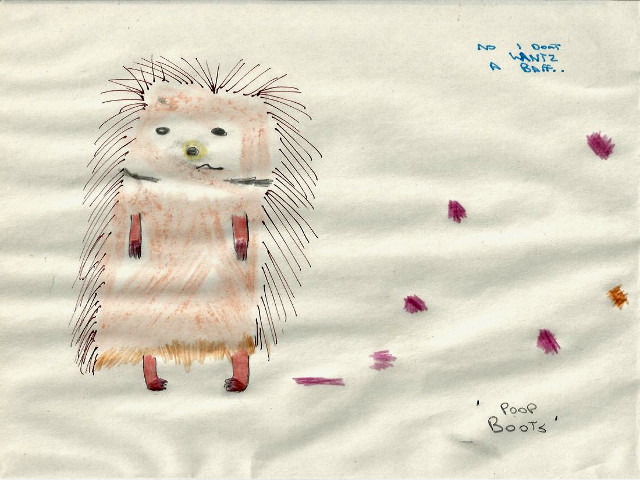 NO I DONT
WANTZ
A BAFF..
'POOP
BOOTS'